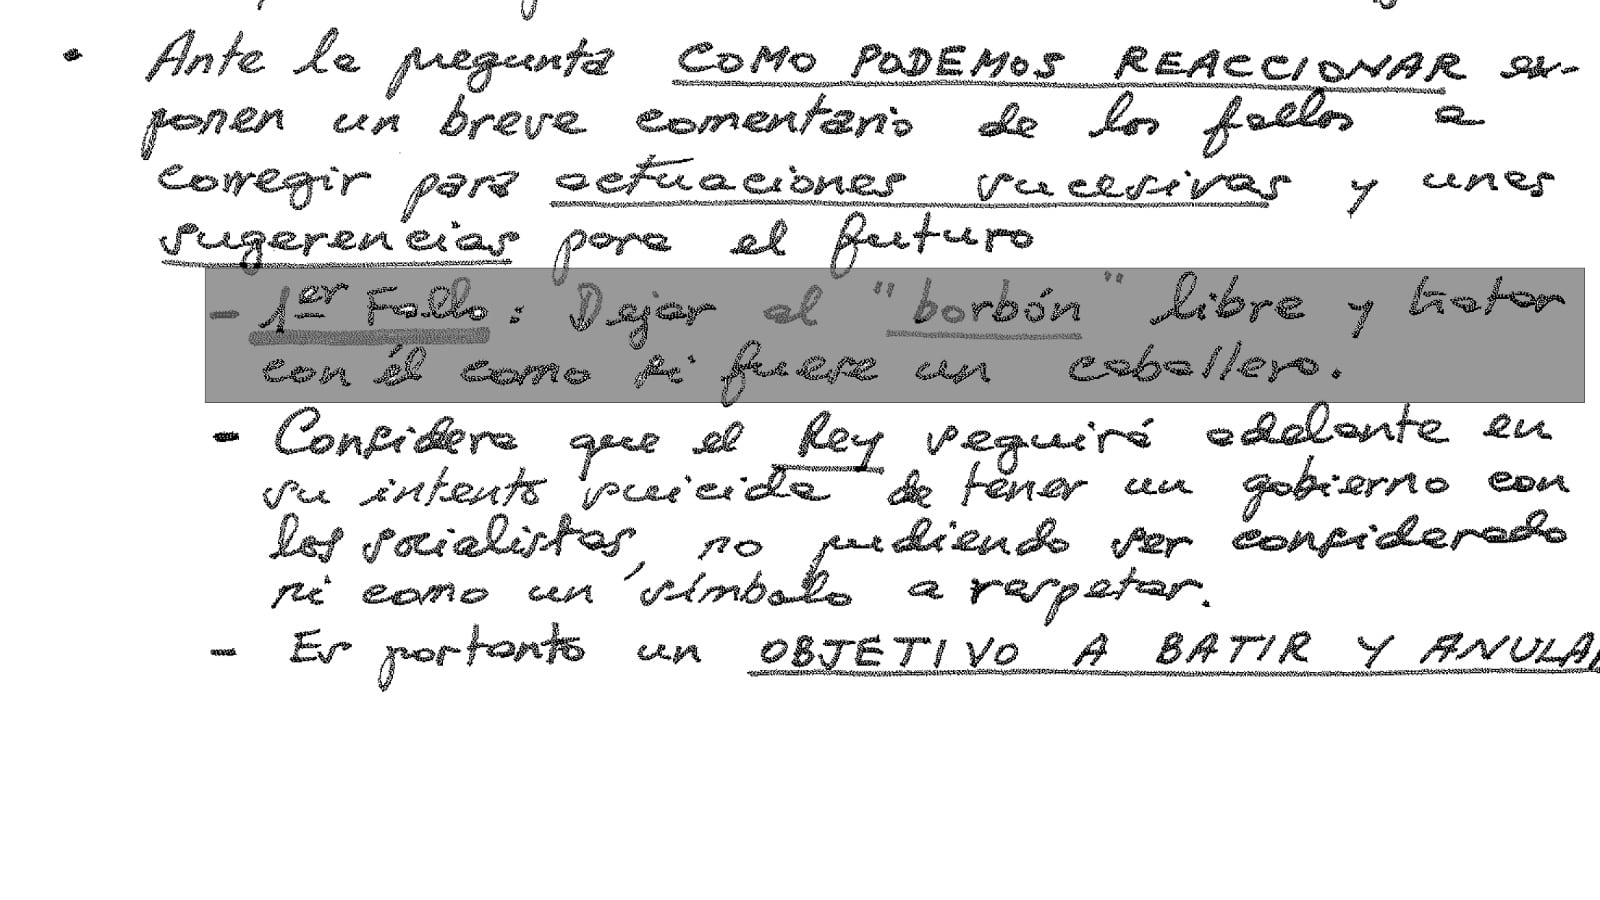 • Ante la pregunta COMO PODEMOS REACCIONAR ex-
ponen un breve comentario de los fallos a
corregir para actuaciones sucesivas y unas
sugerencias para el futuro
- 1er Fallo: Dejar al "borbón" libre y tratar
con él como si fuera un caballero.
- Considera que el Rey seguirá adelante en
su intento suicida de tener un gobierno con
los socialistas, no pudiendo ser considerado
ni como un símbolo a respetar.
- Es portanto un OBJETIVO A BATIR Y ANULAR